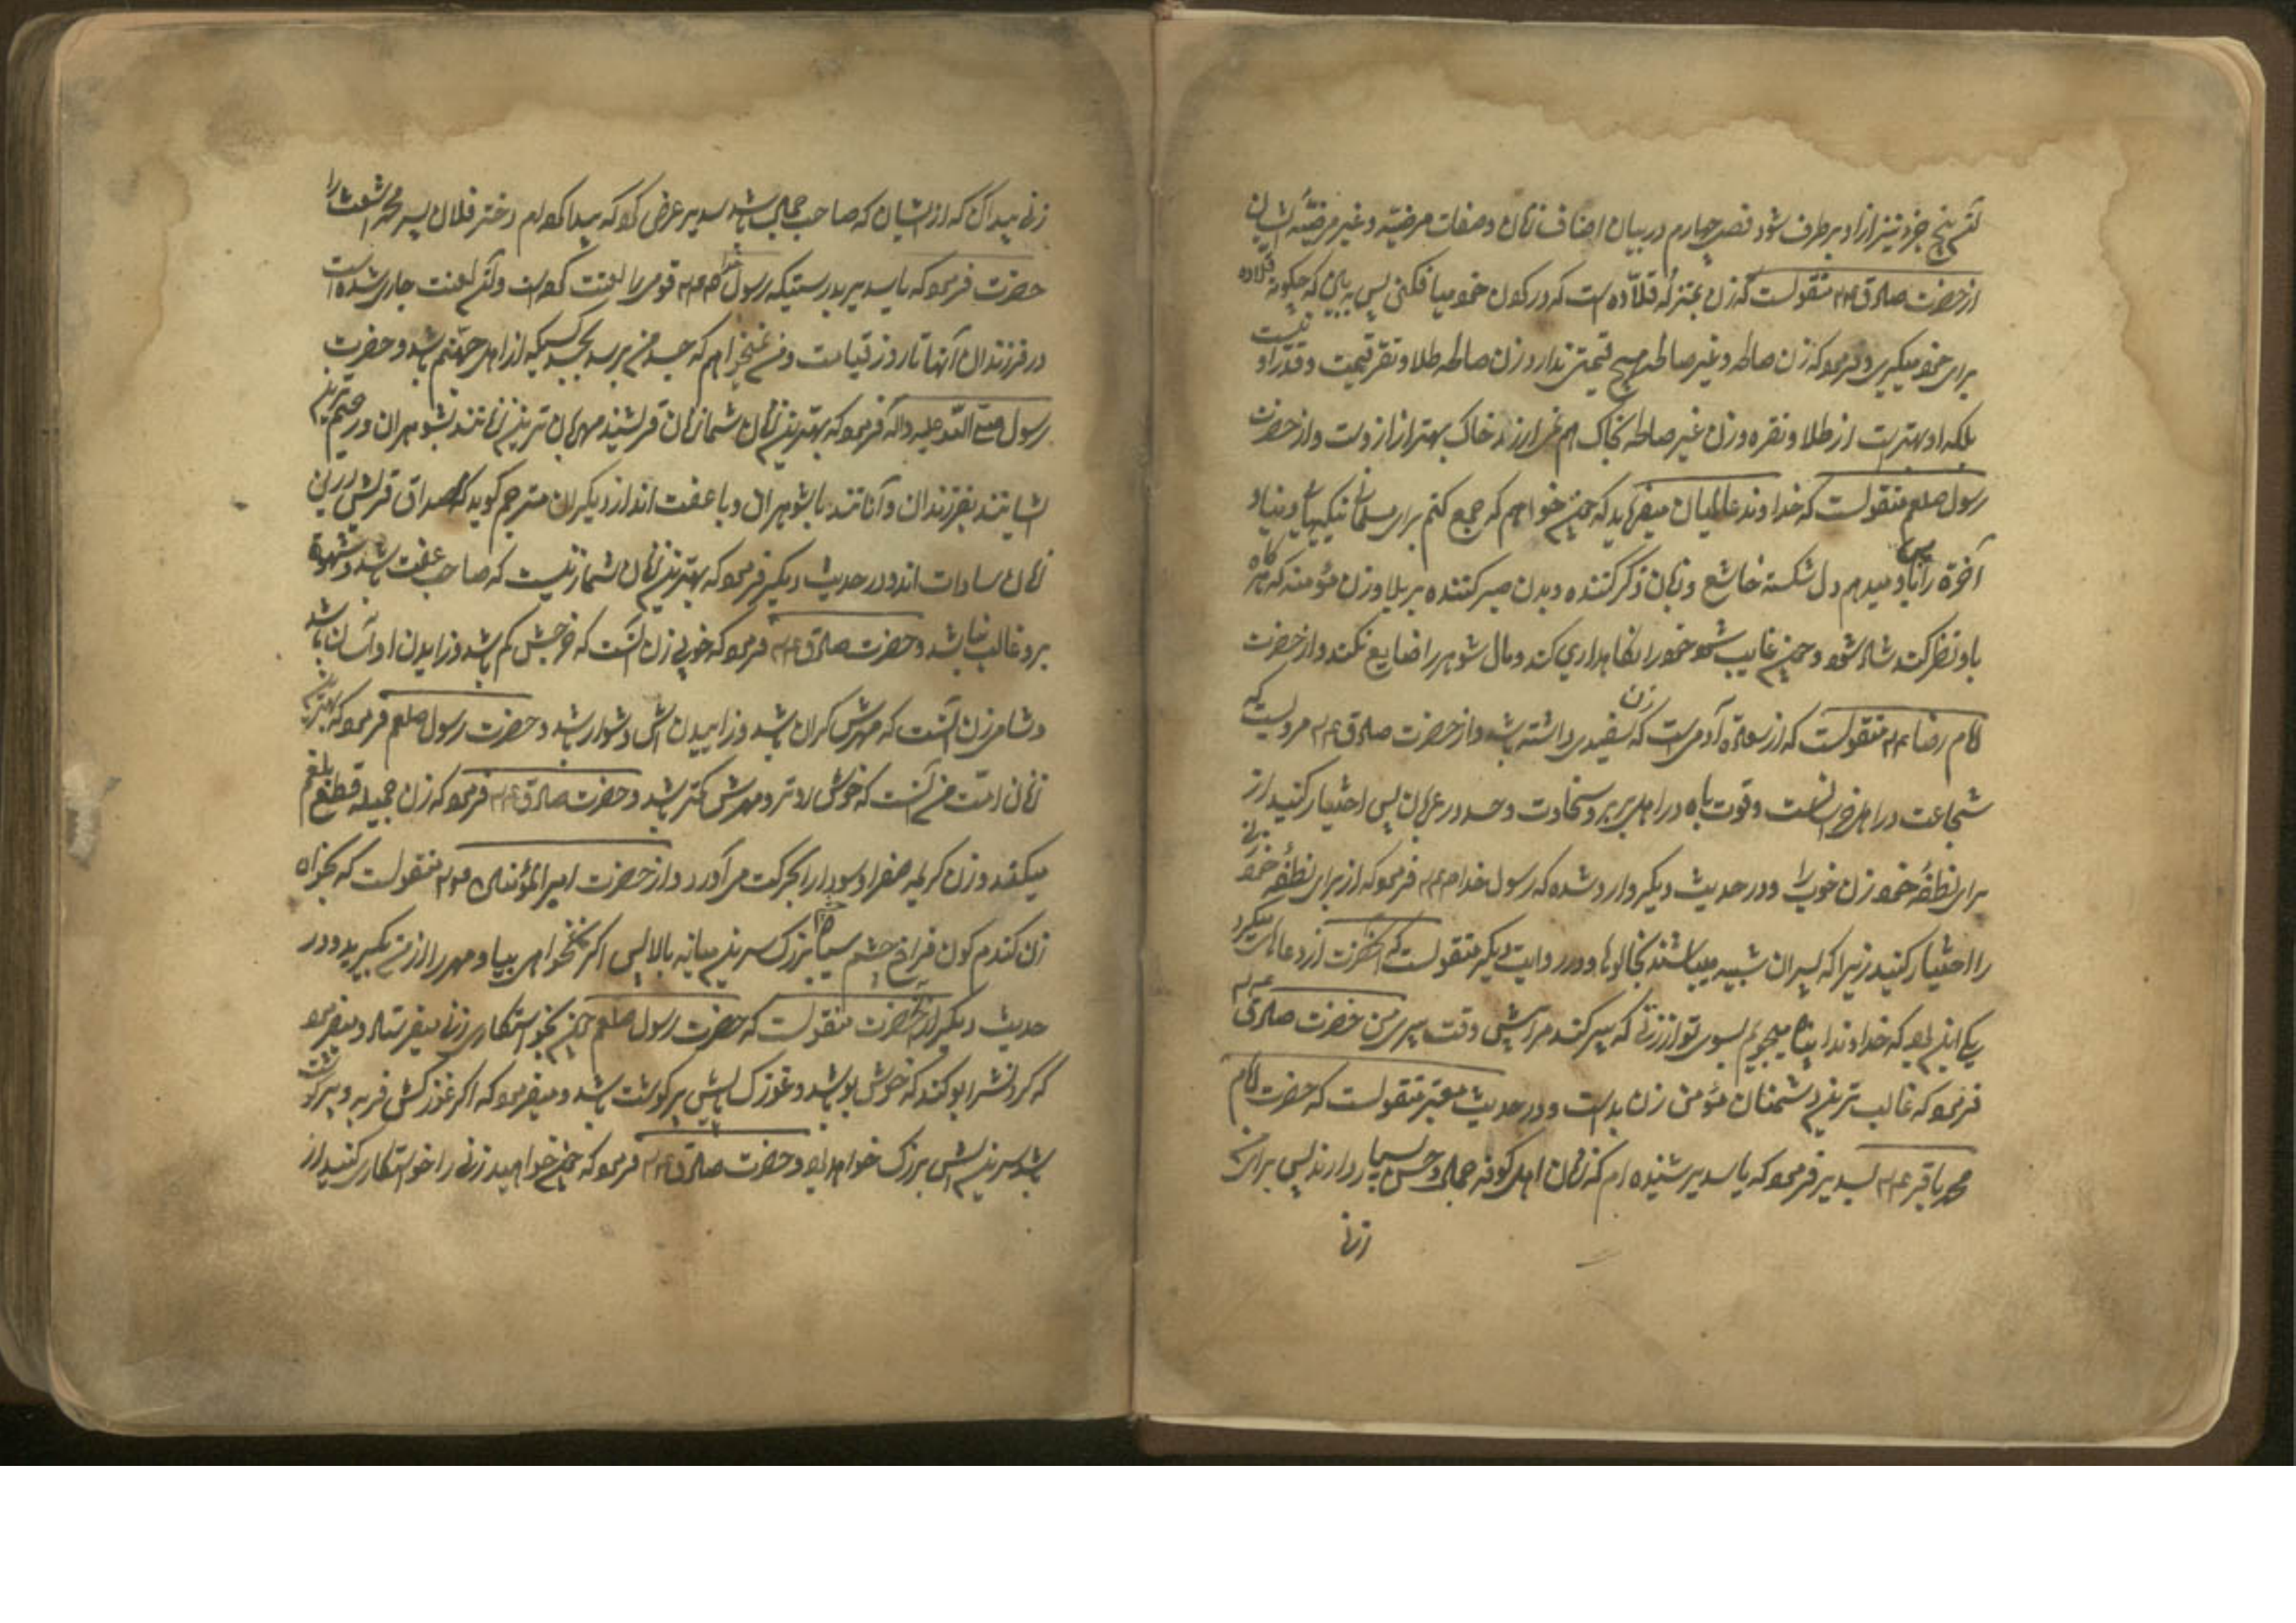 آن پنج جزو نیز از او برطرف شود فصل چهارم در بیان اصناف زنان و صفات مرضیه و غیر مرضیهٔ ایشان
از حضرت صادق منقولست که زن بمنزله قلاده است که در کردن خود میافکنی پس به بین که چکونه قلاده
برای خود میکیری و فرمود که زن صالحه و غیر صالحه هیچ قیمتی ندارد زن صالحه طلا و نقره قیمت و قدر او نیست
بلکه او بهتر است از طلا و نقره و زن غیر صالحه بخاک هم نمی ارزد خاک بهتر از اوست و از حضرت
رسول صلعم منقولست که خداوند عالمیان میفرماید که چون خواهم که جمع کنم برای مسلمانی نیکیهای دنیا و
آخرة را باو میدهم دل شکسته خاشع و زبان ذکر کننده و بدن صبر کننده بر بلا و زن مؤمنه که هرکاه
باو نظر کند شاد شود و چون غایب شود خود را نکاهداری کند و مال شوهر را ضایع نکند و از حضرت
امام رضا منقولست که از سعادة آدمیست که زن سفیدی داشته باشد و از حضرت صادق مرویست که
شجاعت در اهل خراسانست و قوت باه در اهل بربر و سخاوت و حسد در عربان پس اختیار کنید از
برای نطفهٔ خود زن خوب را و در حدیث دیکر وارد شده که رسول خدا فرمود که از برای نطفهٔ خود زنی
را اختیار کنید زیرا که پسران شبیه میباشند بخالوها و در روایت دیکر منقولست که آنحضرت از دعاهای میکرد
یکی این بود که خداوندا پناه میجویم بسوی تو از زنی که پیر کند مرا پیش از وقت پیری من حضرت صادق
فرمود که غالب ترین دشمنان مؤمن زن بد است و در حدیث معتبر منقولست که حضرت امام
محمد باقر بسدیر فرمود که یا سدیر شنیده ام که زنان اهل کوفه جمال و حسن بسیار دارند پس برای من
زنی
زنی پیدا کن که از ایشان که صاحب جمال باشد سدیر عرض کرد که پیدا کرده ام دختر فلان پسر محمد اشعث را
حضرت فرمود که یا سدیر بدرستیکه رسول خدا قومی را لعنت کرده است و آن لعنت جاری شده است
در فرزندان آنها تا روز قیامت و من نمیخواهم که جسد من برسد بجسد کسیکه از اهل جهنم باشد و حضرت
رسول صلی الله علیه و اله فرمود که بهترین زنان شما زنان قریشند مهربان ترین زنانند بشوهران و رحیم ترین
ایشانند بفرزندان و آنانند با شوهران و با عفت اند از دیکران مترجم کوید که مصداق قریش درین
زمان سادات اند و در حدیث دیکر فرمود که بهترین زنان شما زنیست که صاحب عفت باشد و شهوة
برو غالب نباشد و حضرت صادق فرمود که خوبی زن آنست که خرجش کم باشد و زاییدن او آسان باشد
و شامی زن آنست که مهرش کران باشد و زاییدن اش دشوار باشد و حضرت رسول صلعم فرمود که بهترین
زنان امت من آنست که خوش رو تر و مهرش کمتر باشد و حضرت صادق فرمود که زن جمیله قطع بلغم
میکند و زن کریهه صفرا و سودا را بحرکت می آورد و از حضرت امیر المؤمنین منقولست که بخواه
زن کندم کون فراخ چشم سیاه چشم بزرک سرین میانه بالا پس اکر نخواهی بیا و مهر را از من بکیرید و در
حدیث دیکر از آنحضرت منقولست که حضرت رسول صلعم چون بخواستکاری زنی میفرستاد و میفرمود
که کردنش را بو کند که خوش بو باشد و غوزک پایش پر کوشت باشد و میفرمود که اکر غوزکش فربه و پر کوشت
باشد سرینش بزرک خواهد بود و حضرت صادق فرمود که چون خواهید زنی را خواستکاری کنید از